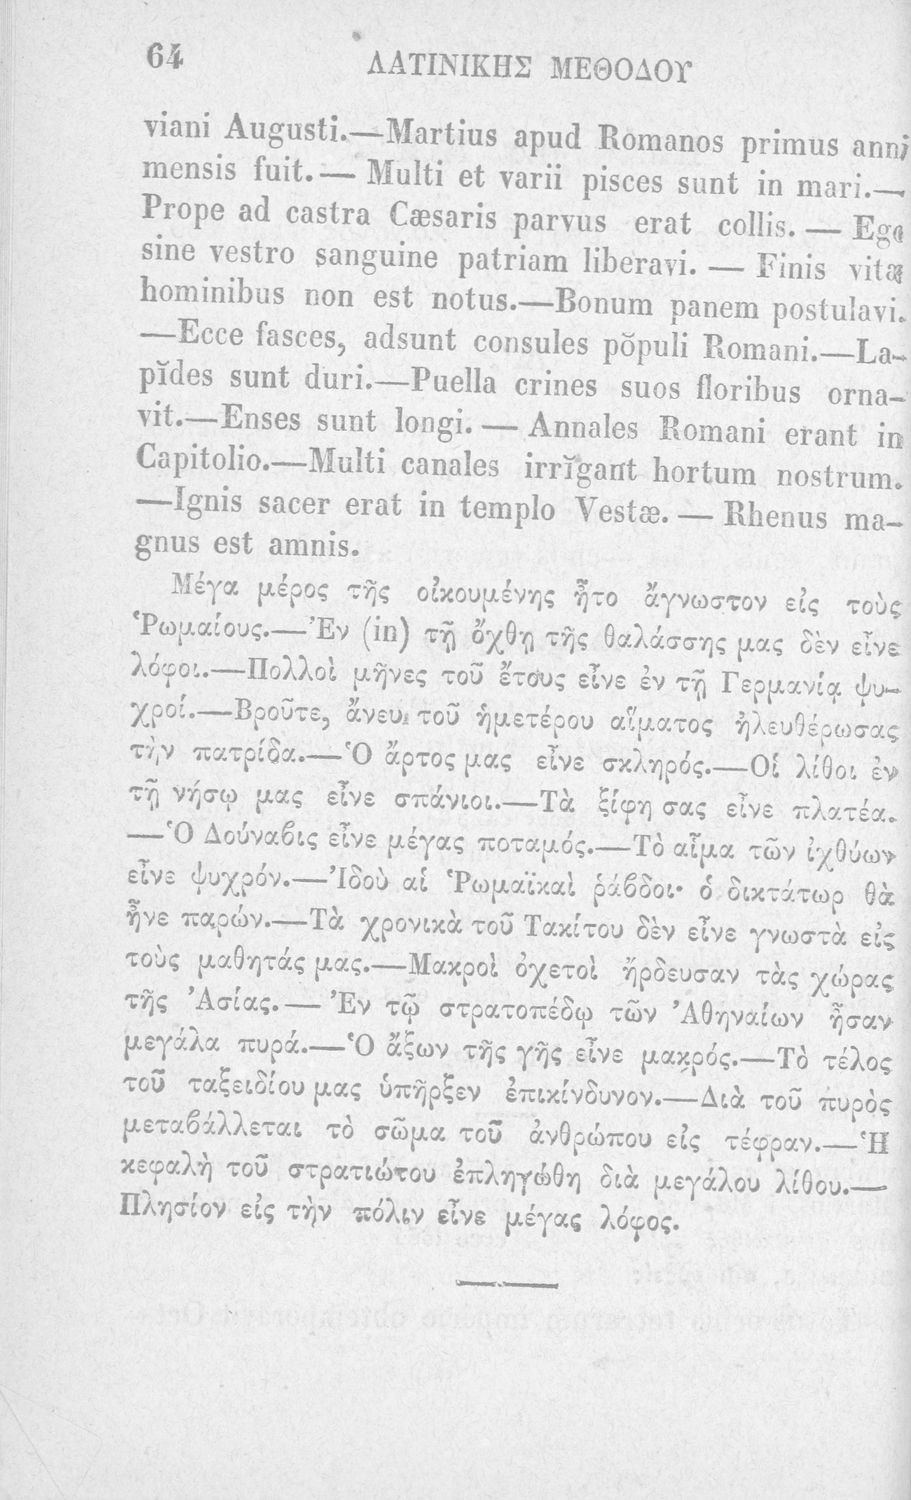 64 ΛΑΤΙΝΙΚΗΣ ΜΕΘΟΔΟΥ
viani Augusti.—Martius apud Romanos primus anni
mensis fuit.— Multi et varii pisces sunt in mari.—
Prope ad castra Cæsaris parvus erat collis. — Ego
sine vestro sanguine patriam liberavi. — Finis vitæ
hominibus non est notus.—Bonum panem postulavi.
—Ecce fasces, adsunt consules pŏpuli Romani.—La-
pĭdes sunt duri.—Puella crines suos floribus orna-
vit.—Enses sunt longi. — Annales Romani erant in
Capitolio.—Multi canales irrĭgant hortum nostrum.
—Ignis sacer erat in templo Vestæ. — Rhenus ma-
gnus est amnis.
Μέγα μέρος τῆς οἰκουμένης ἦτο ἄγνωστον εἰς τοὺς
Ῥωμαίους.—Ἐν (in) τῇ ὄχθῃ τῆς θαλάσσης μας δὲν εἶνε
λόφοι.—Πολλοὶ μῆνες τοῦ ἔτους εἶνε ἐν τῇ Γερμανίᾳ ψυ-
χροί.—Βροῦτε, ἄνευ τοῦ ἡμετέρου αἵματος ἠλευθέρωσας
τὴν πατρίδα.—Ὁ ἄρτος μας εἶνε σκληρός.—Οἱ λίθοι ἐν
τῇ νήσῳ μας εἶνε σπάνιοι.—Τὰ ξίφη σας εἶνε πλατέα.
—Ὁ Δούναβις εἶνε μέγας ποταμός.—Τὸ αἷμα τῶν ἰχθύων
εἶνε ψυχρόν.—Ἰδοὺ αἱ Ῥωμαϊκαὶ ῥάβδοι· ὁ δικτάτωρ θὰ
ἦνε παρών.—Τὰ χρονικὰ τοῦ Τακίτου δὲν εἶνε γνωστὰ εἰς
τοὺς μαθητάς μας.—Μακροὶ ὀχετοὶ ἤρδευσαν τὰς χώρας
τῆς Ἀσίας.— Ἐν τῷ στρατοπέδῳ τῶν Ἀθηναίων ἦσαν
μεγάλα πυρά.—Ὁ ἄξων τῆς γῆς εἶνε μακρός.—Τὸ τέλος
τοῦ ταξειδίου μας ὑπῆρξεν ἐπικίνδυνον.—Διὰ τοῦ πυρὸς
μεταβάλλεται τὸ σῶμα τοῦ ἀνθρώπου εἰς τέφραν.—Ἡ
κεφαλὴ τοῦ στρατιώτου ἐπληγώθη διὰ μεγάλου λίθου.—
Πλησίον εἰς τὴν πόλιν εἶνε μέγας λόφος.